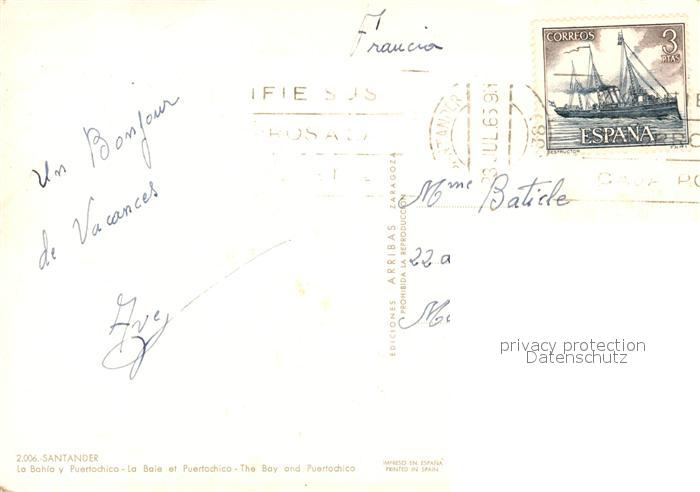 Francia
CORREOS 3
PTAS
ESPAÑA
DESTRUCTOR
IFIE SUS
JUL.65
Un Bonjour
de Vacances
Mme Baticle
22 a
EDICIONES ARRIBAS ZARAGOZA
PROHIBIDA LA REPRODUCCIÓN
privacy protection
Datenschutz
2.006.-SANTANDER
La Bahía y Puertochico - La Baie et Puertochico - The Bay and Puertochico
IMPRESO EN ESPAÑA
PRINTED IN SPAIN